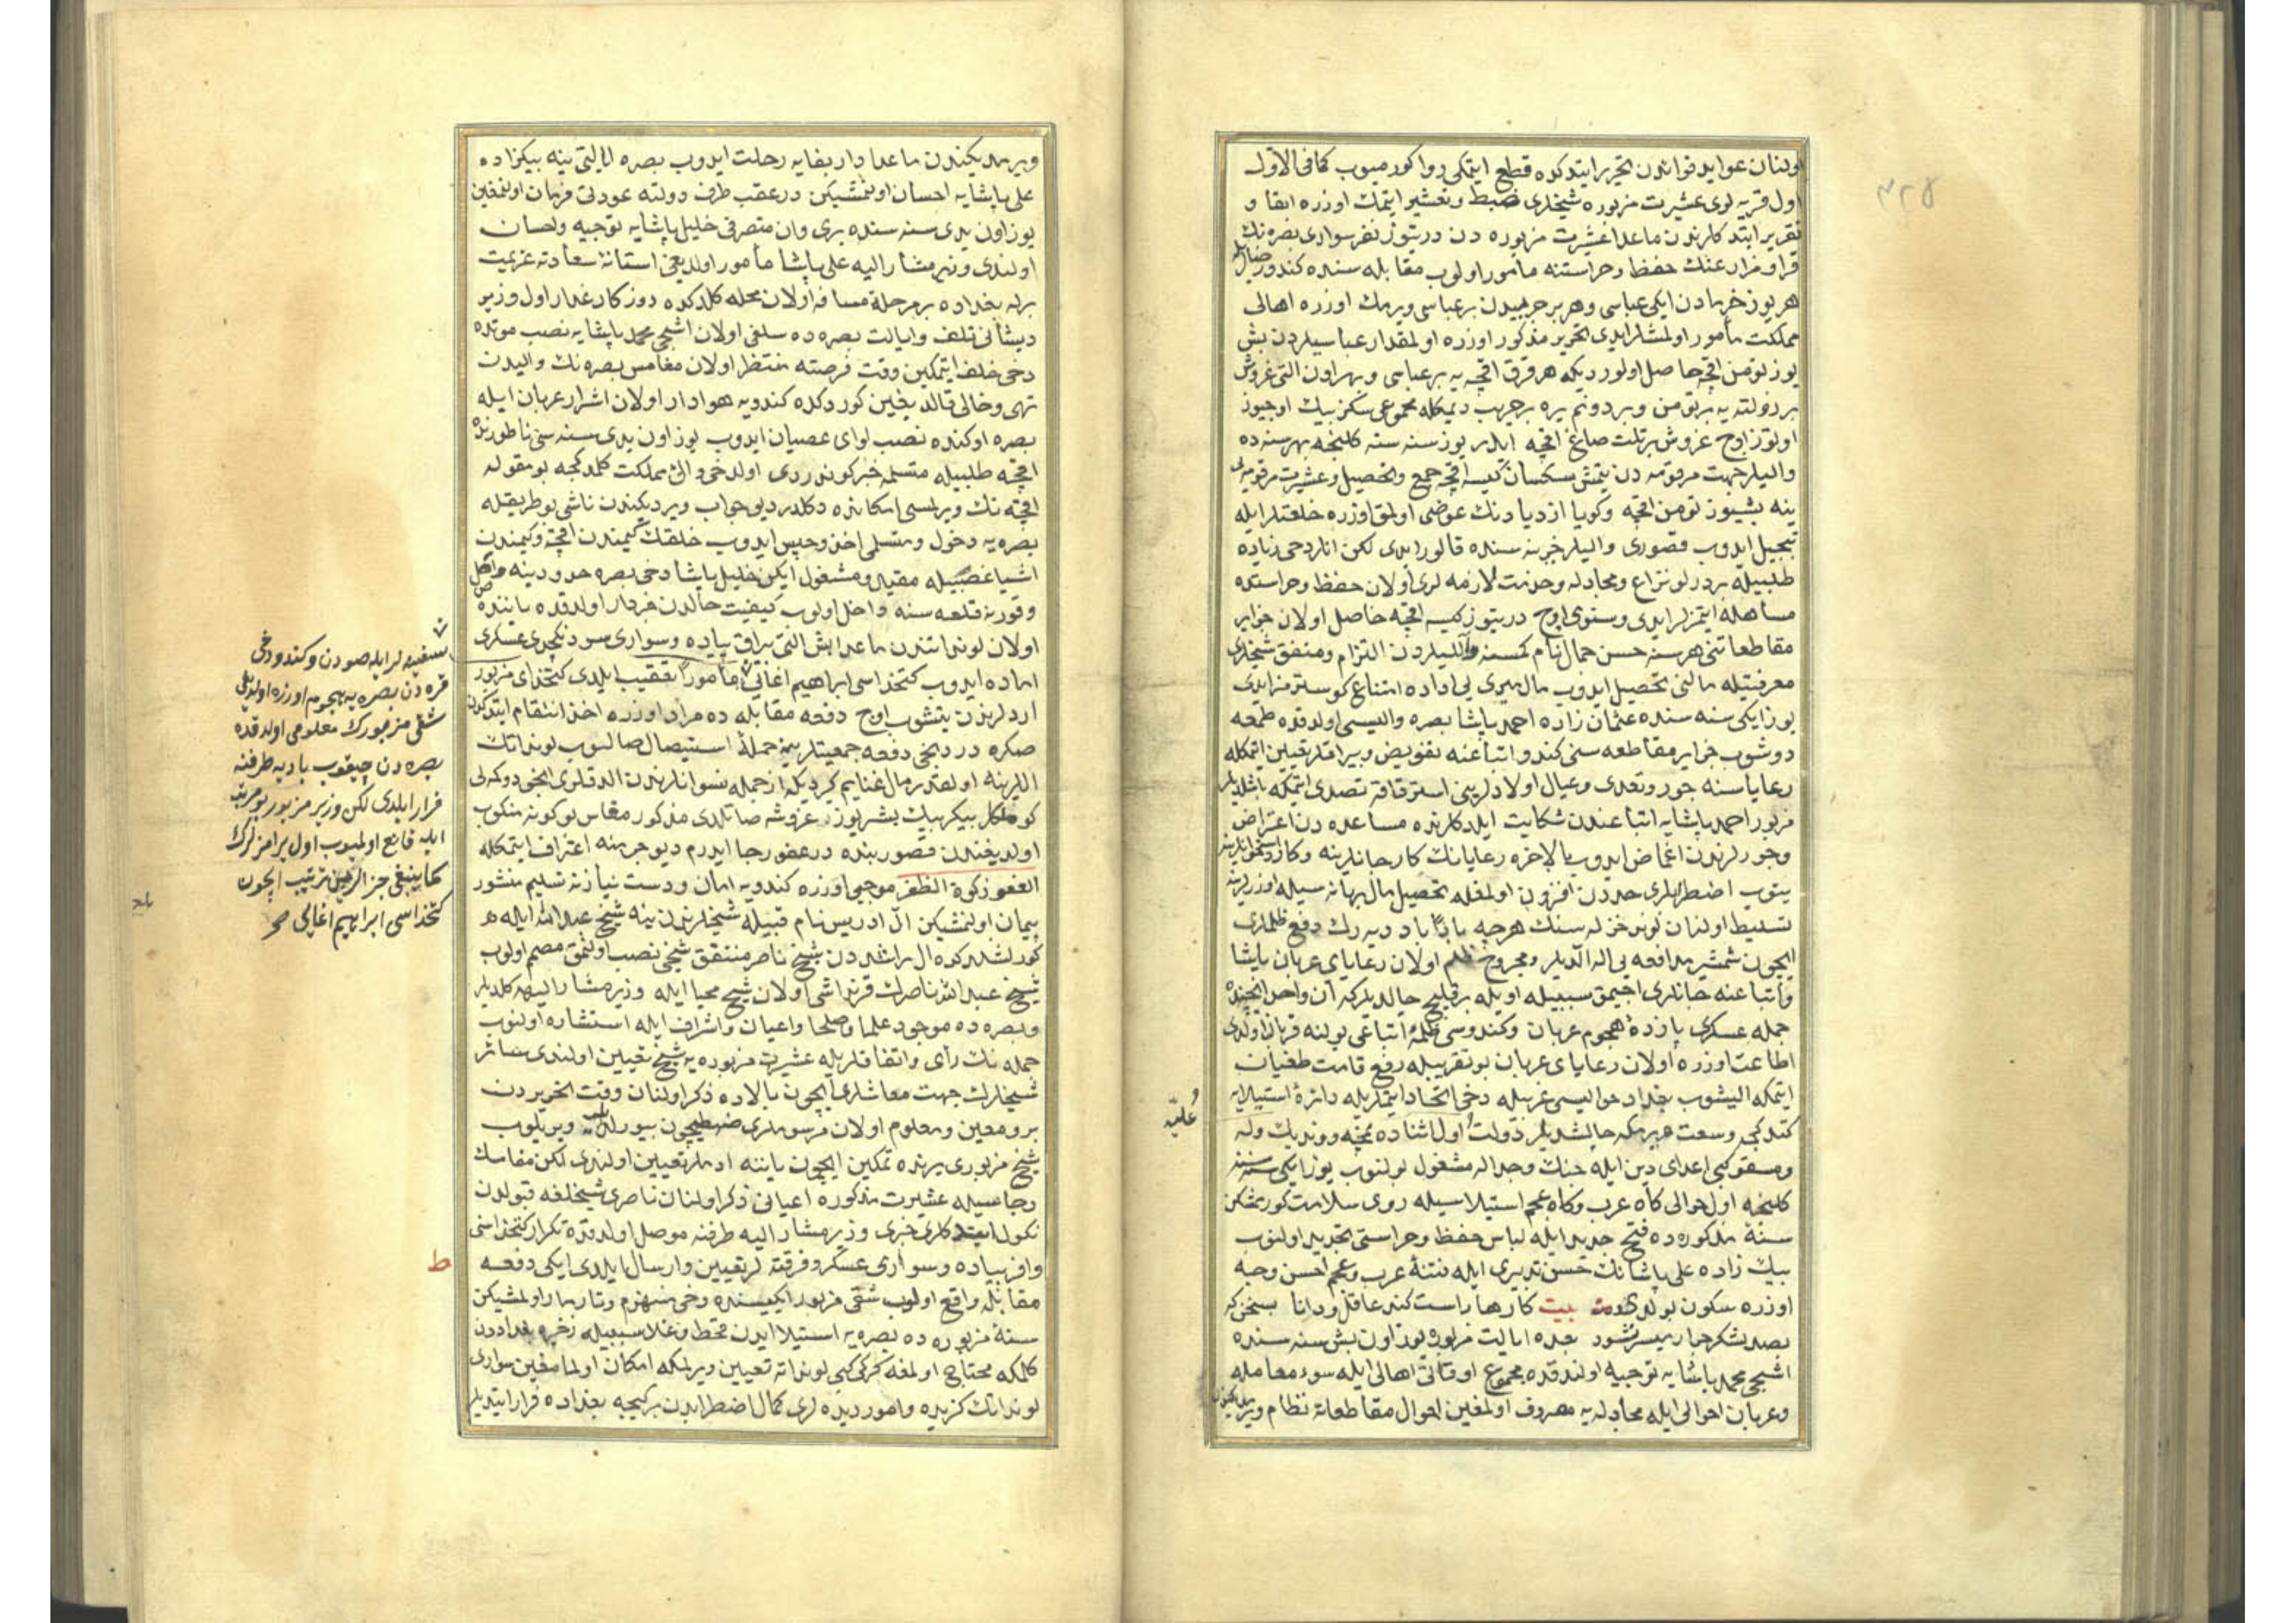 اولنان عوايد فوائدن تحرير ايتدكده قطع ايتمكى روا كورميوب كما فى الاول
اول قريه لرى عشيرت مزبوره شيخلرى ضبط وتعشير ايتمك اوزره ابقا و
تقرير ايتدكلرندن ماعدا عشيرت مزبوره دن درتيوز نفر سوارى بصره نك
قرا ومزارعنك حفظ وحراستنه مأمور اولوب مقابله سنده كندو
هر يوز خرمادن ايكى عباسى وهر بر جريبدن بر عباسى ويرمك اوزره اهالى
مملكت مأمور اولمشلر ايدى تحرير مذكور اوزره اولمقدار عباسيلردن بش
يوز تومن اقچه حاصل اولور ديكه هر قرق اقچه يه بر عباسى وبهر اون التى غروش
بر زولته يه بر تومن وبر دونم يره بر جريب ديمكله مجموعى سكز بيك اوچيوز
اوتوز اوچ غروش بر ثلث صاغ اقچه ايدر يوز سنه سنه كلنجه بهر سنه ده
واليلر جهت مرقومه دن يتمش سكسان كيسه اقچه جمع وتحصيل وعشيرت مرقومه لى
ينه بشيوز تومن اقچه وكويا ازديادنك عوضى اولمق اوزره خلعتلر ايله
تبجيل ايدوب قصورى واليلر خزينه سنده قالور ايدى لكن انلر دخى زياده
طلبيله بر درلو نزاع ومجادله وخدمت لازمه لرى اولان حفظ وحراستده
مساهله ايتمزلر ايدى وسنوى اوچ درتيوز كيسه اقچه حاصل اولان جزاير
مقاطعاتنى هر سنه حسن جمال نام كمسنه واليلردن التزام ومنتفق شيخلرى
معرفتيله مالنى تحصيل ايدوب مال ميرى يى اداده امتناع كوسترمز ايدى
يوز ايكى سنه سنده عثمان زاده احمد پاشا بصره واليسى اولدقده طمعه
دوشوب جزاير مقاطعه سنى كندو اتباعنه تفويض وبيراقلر تعيين ايتمكله
رعاياسنه جور وتعدى وعيال اولادلرينى استرقاقه تصدى ايتمكه باشلديلر
مزبور احمد پاشايه اتباعندن شكايت ايلدكلرنده مساعده دن اعتراض
وجورلرندن اغماض ايدوب بالاخره رعايانك كارد جانلرينه وكارد استخوانلرينه
يتوب اضطرابلرى حددن افزون اولمغله تحصيل مال بهانه سيله اوزرلرينه
تسليط اولنان لوند خزله سنك هرچه باداباد ديه رك دفع ظلملرى
ايچون شمشير مدافعه يى اله الديلر ومجروح ظلم اولان رعاياى عربان پاشا
واتباعنه جانلرى اجيمق سببيله اويله بر قليج چالديلر كه آن واحد ايچنده
جمله عسكرى پازدهٔ هجوم عربان وكندوسى ظلمهٔ اتباعى يولنه قربان اولدى
اطاعت اوزره اولان رعاياى عربان بو تقريبله رفع قامت طغيان
ايتمكه اليشوب بغداد حواليسى عربيله دخى اتحاد ايتمكله دائرهٔ استيلايه
كتدكجه وسعت ويرمكه چالشديلر دولت اول اثناده نمچه ووندیك وله
ومسقو كبى اعداى دين ايله جنك وجداله مشغول بولنوب يوز ايكى سنه سنه
كلنجه اول حوالى كاه عرب وكاه عجم استيلاسيله روى سلامت كورمشكن
سنهٔ مذكوره ده فتح جديد ايله لباس حفظ وحراستى تجديد اولنوب
بيك زاده على پاشانك حسن تدبيرى ايله فتنهٔ عرب وعجم احسن وجه
اوزره سكون بولدى بيت كارها راست كند عاقل ودانا بسخن كه
بصد لشكر جرار ميسر نشود بعده ايالت مزبوره يوز اون بش سنه سنده
اشجى محمد پاشايه توجيه اولندقده مجموع اوقاتى اهالى ايله سوء معامله
وعربان احوالى ايله مجادله يه مصروف اولمغين احوال مقاطعاته نظام
عليّه
ويرمديكندن ماعدا دار بقايه رحلت ايدوب بصره ايالتى ينه بيكزاده
على پاشايه احسان اولنمشيكن درعقب طرف دولته عودتى فرمان اولنمغين
يوز اون يدى سنه سنده برى وان متصرفى خليل پاشايه توجيه واحسان
اولندى وزير مشار اليه على پاشا مأمور اولديغى استانهٔ سعادته عزيمت
برله بغداده بر مرحلهٔ مسافه اولان محله كلدكده روزكار غدار اول وزير
ذيشانى تلف وايالت بصره ده سلفى اولان اشجى محمد پاشايه نصب موتده
دخى خلف ايتمكين وقت فرصته منتظر اولان مغامس بصره نك واليدن
تهى وخالى قالديغين كوردكده كندويه هوادار اولان اشرار عربان ايله
بصره اوكنده نصب لواى عصيان ايدوب يوز اون يدى سنه سى ناطورنده
اقچه طلبيله متسلمه خبر كوندردى اولدخى والئ مملكت كلمدكجه بو مقوله
اقچه نك ويرلمسى امكانده دكلدر ديو جواب ويرديكندن ناشى بو طريقيله
بصره يه دخول ومتسلمى اخذ وحبس ايدوب خلقك كيمندن اقچه وكيمندن
اشيا غصبيله مقيد ومشغول ايكن خليل پاشا دخى بصره حدودينه واصل
وقورنه قلعه سنه داخل اولوب كيفيت حالدن خبردار اولدقده ياننده
اولان لونداتندن ماعدا بش التى بيراق پياده وسوارى سود نكچدى عسكرى
اماده ايدوب كتخداسى ابراهيم اغايى مأموراً تعقيب ايلدى كتخداى مزبور
اردلرندن يتشوب اوچ دفعه مقابله ده مراد اوزره اخذ انتقام ايتدكدن
صكره دردنجى دفعه جمعيتلرينه جملهٔ استيصال صالنوب لونداتك
اللرينه اولقدر مال غنايم كيرديكه از جمله نسوانلرندن الدقلرى انجى دوكمه لى
كوملكلر بيكر بيك بشريوز غروشه صاتلدى مذكور مغامس بو كونه منكوب
اولديغندن قصورينده درعفو رجا ايدرم ديو جرمنه اعتراف ايتمكله
العفو زكوة الظفر موجبى اوزره كندويه امان ودست نيازنه تسليم منشور
پيمان اولنمشيكن ال ادريس نام قبيله شيخلرندن ينه شيخ عبد الله ايله
كورلشدركده ال راشددن شيخ ناصر منتفق شيخى نصب اولنمق مصمم اولوب
شيخ عبد الله ناصرك قرنداشى اولان شيخ محيا ايله وزير مشار اليهه كلديلر
وبصره ده موجود علما وصلحا واعيان واشراف ايله استشاره اولنوب
جمله نك رأى واتفاقلريله عشيرت مزبوره يه شيخ تعيين اولندى سائر
شيخلرك جهت معاشلرى ايچون بالاده ذكر اولنان وقت تحريردن
برو معين ومعلوم اولان مرسوملرى ضبطيچون بيورلدى ويريلوب
شيخ مزبورى يرنده تمكين ايچون ياننه ادملر تعيين اولندى لكن مغامسك
رجاسيله عشيرت مذكوره اعيانى ذكر اولنان ناصرى شيخلغه قبولدن
نكول ايتدكلرى خبرى وزير مشار اليه طرفنه موصل اولدقده تكرار كتخداسنى
وافر پياده وسوارى عسكر وفرقته لر تعيين وارسال ايلدى ايكى دفعه
مقابله واقع اولوب شقى مزبور ايكيسنده دخى منهزم وتارمار اولمشيكن
سنهٔ مزبوره ده بصره يه استيلا ايدن قحط وغلا سببيله ذخيره بغداددن
كلمكه محتاج اولمغه كركى كبى لونداته تعيين ويرلمكه امكان اولمامغين سوارى
لونداتك كزيده وامور ديده لرى كمال اضطرابدن بر كيجه بغداده فرار ايتديلر
سفينه لر ايله صودن وكندو دخى
قره دن بصره يه هجوم اوزره اولديغى
شقى مزبورك معلومى اولدقده
بصره دن چيقوب باديه طرفنه
فرار ايلدى لكن وزير مزبور بو مرتبه
ايله قانع اولميوب اول برامزلرك
كما ينبغى جزالرين ترتيب ايچون
كتخداسى ابراهيم اغايى صح
ط